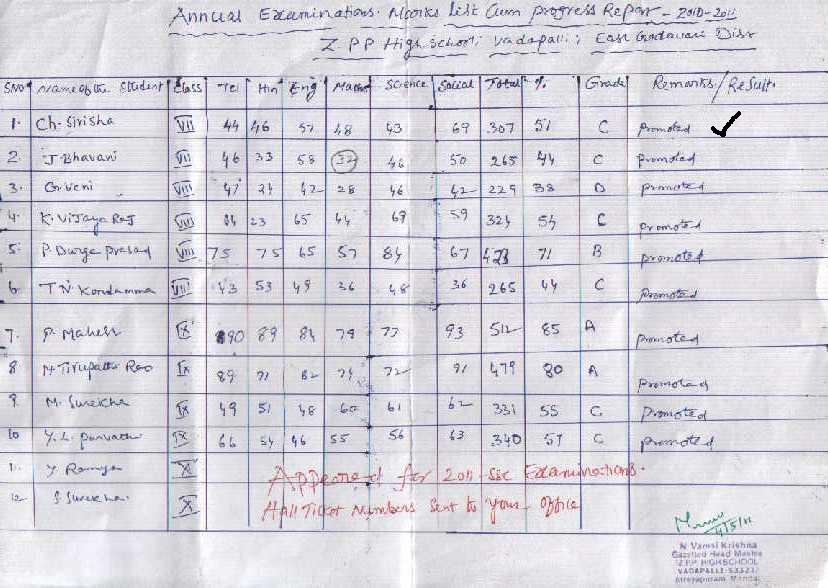 Annual Examinations. Marks List Cum Progress Report - 2010-2011
Z PP High School, Vadapalli, East Godavari Dist
SNO Name of the Student Class Tel Hin Eng Maths Science Social Total % Grade Remarks/Result.
1. Ch. Sirisha VII 44 46 57 48 43 69 307 51 C promoted
2 J. Bhavani VII 46 33 58 32 46 50 265 44 C promoted
3. G. Veni VIII 47 24 42 28 46 42 229 38 D promoted
4. K. Vijaya Raj VIII 64 23 65 44 69 59 324 54 C promoted
5. P. Durga prasad VIII 75 75 65 57 84 67 423 71 B promoted
6 T N Kondamma VIII 43 53 49 36 48 36 265 44 C promoted
7. P. Mahesh IX 90 89 84 79 77 93 512 85 A Promoted
8 N Tirupathi Rao IX 89 71 82 74 72 91 479 80 A promoted
9 M. Surekha IX 49 51 48 60 61 62 331 55 C promoted
10 Y. L. parvathi IX 66 54 46 55 56 63 340 57 C promoted
11 Y Ramya X Appeared for 2011-SSC Examinations.
12 S Surekha. X Hall Ticket Numbers sent to your office
4/5/11
N Vamsi Krishna
Gazetted Head Master
Z.P.P HIGH SCHOOL
VADAPALLE-533237
Atreyapuram Mandal